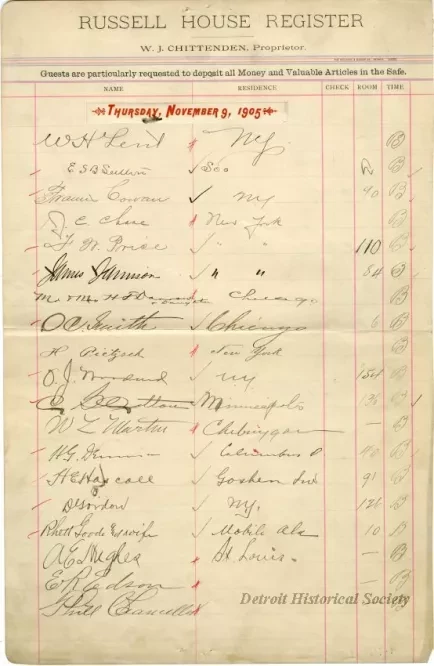 RUSSELL HOUSE REGISTER
W. J. CHITTENDEN, Proprietor.
Guests are particularly requested to deposit all Money and Valuable Articles in the Safe.
NAME RESIDENCE CHECK ROOM TIME
THURSDAY, NOVEMBER 9, 1905
W H NY B
E S B B
Francis Cowan NY 40 B
J. C. New York B
F. W. Price " " 110 B
James " " 84 B
Mr & Mrs H Chicago B
O C Smith Chicago 6 B
H Pietzsch New York B
O. J. Woodward NY 154 B
Minneapolis 136 B
W L Martin Cheboygan — B
H G Columbus O 40 B
A E Hascall Goshen Ind 91 B
NY. 126 B
Rhett Goode & wife Mobile Ala 10 B
A E Hughes St Louis. — B
E R Edson — B
Phil Chancellor
Detroit Historical Society